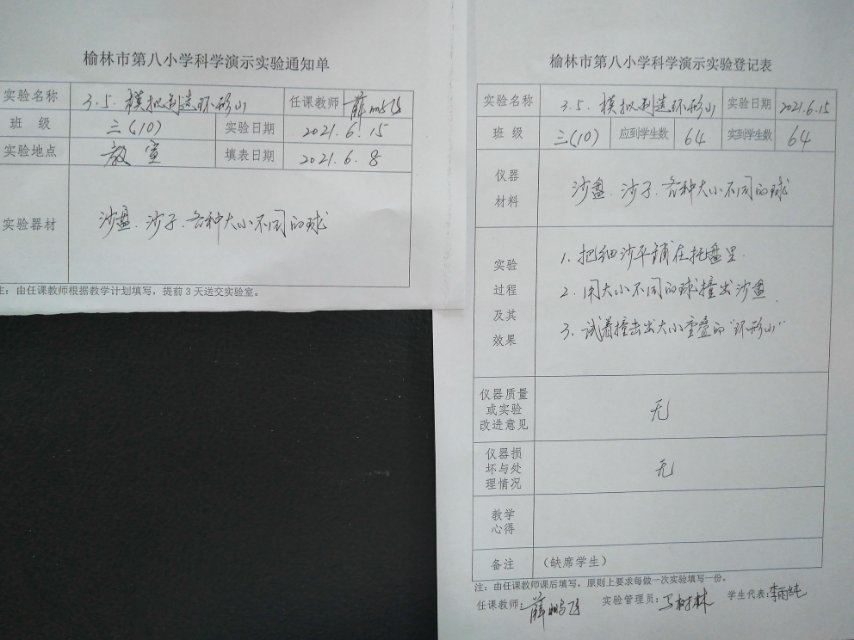 榆林市第八小学科学演示实验通知单
实验名称 3.5.模拟制造环形山 任课教师 薛鹏飞
班 级 三(10) 实验日期 2021.6.15
实验地点 教室 填表日期 2021.6.8
实验器材 沙盘.沙子.各种大小不同的球
注：由任课教师根据教学计划填写，提前3天送交实验室。
榆林市第八小学科学演示实验登记表
实验名称 3.5.模拟制造环形山 实验日期 2021.6.15
班 级 三(10) 应到学生数 64 实到学生数 64
仪器
材料
沙盘.沙子.各种大小不同的球
实验
过程
及其
效果
1.把细沙平铺在托盘里.
2.用大小不同的球撞击沙盘.
3.试着撞击出大小重叠的"环形山"
仪器质量
或实验
改进意见
无
仪器损
坏与处
理情况
无
教学
心得
备注 (缺席学生)
注：由任课教师课后填写，原则上要求每做一次实验填写一份。
任课教师：薛鹏飞 实验管理员：马树林 学生代表：李雨纯